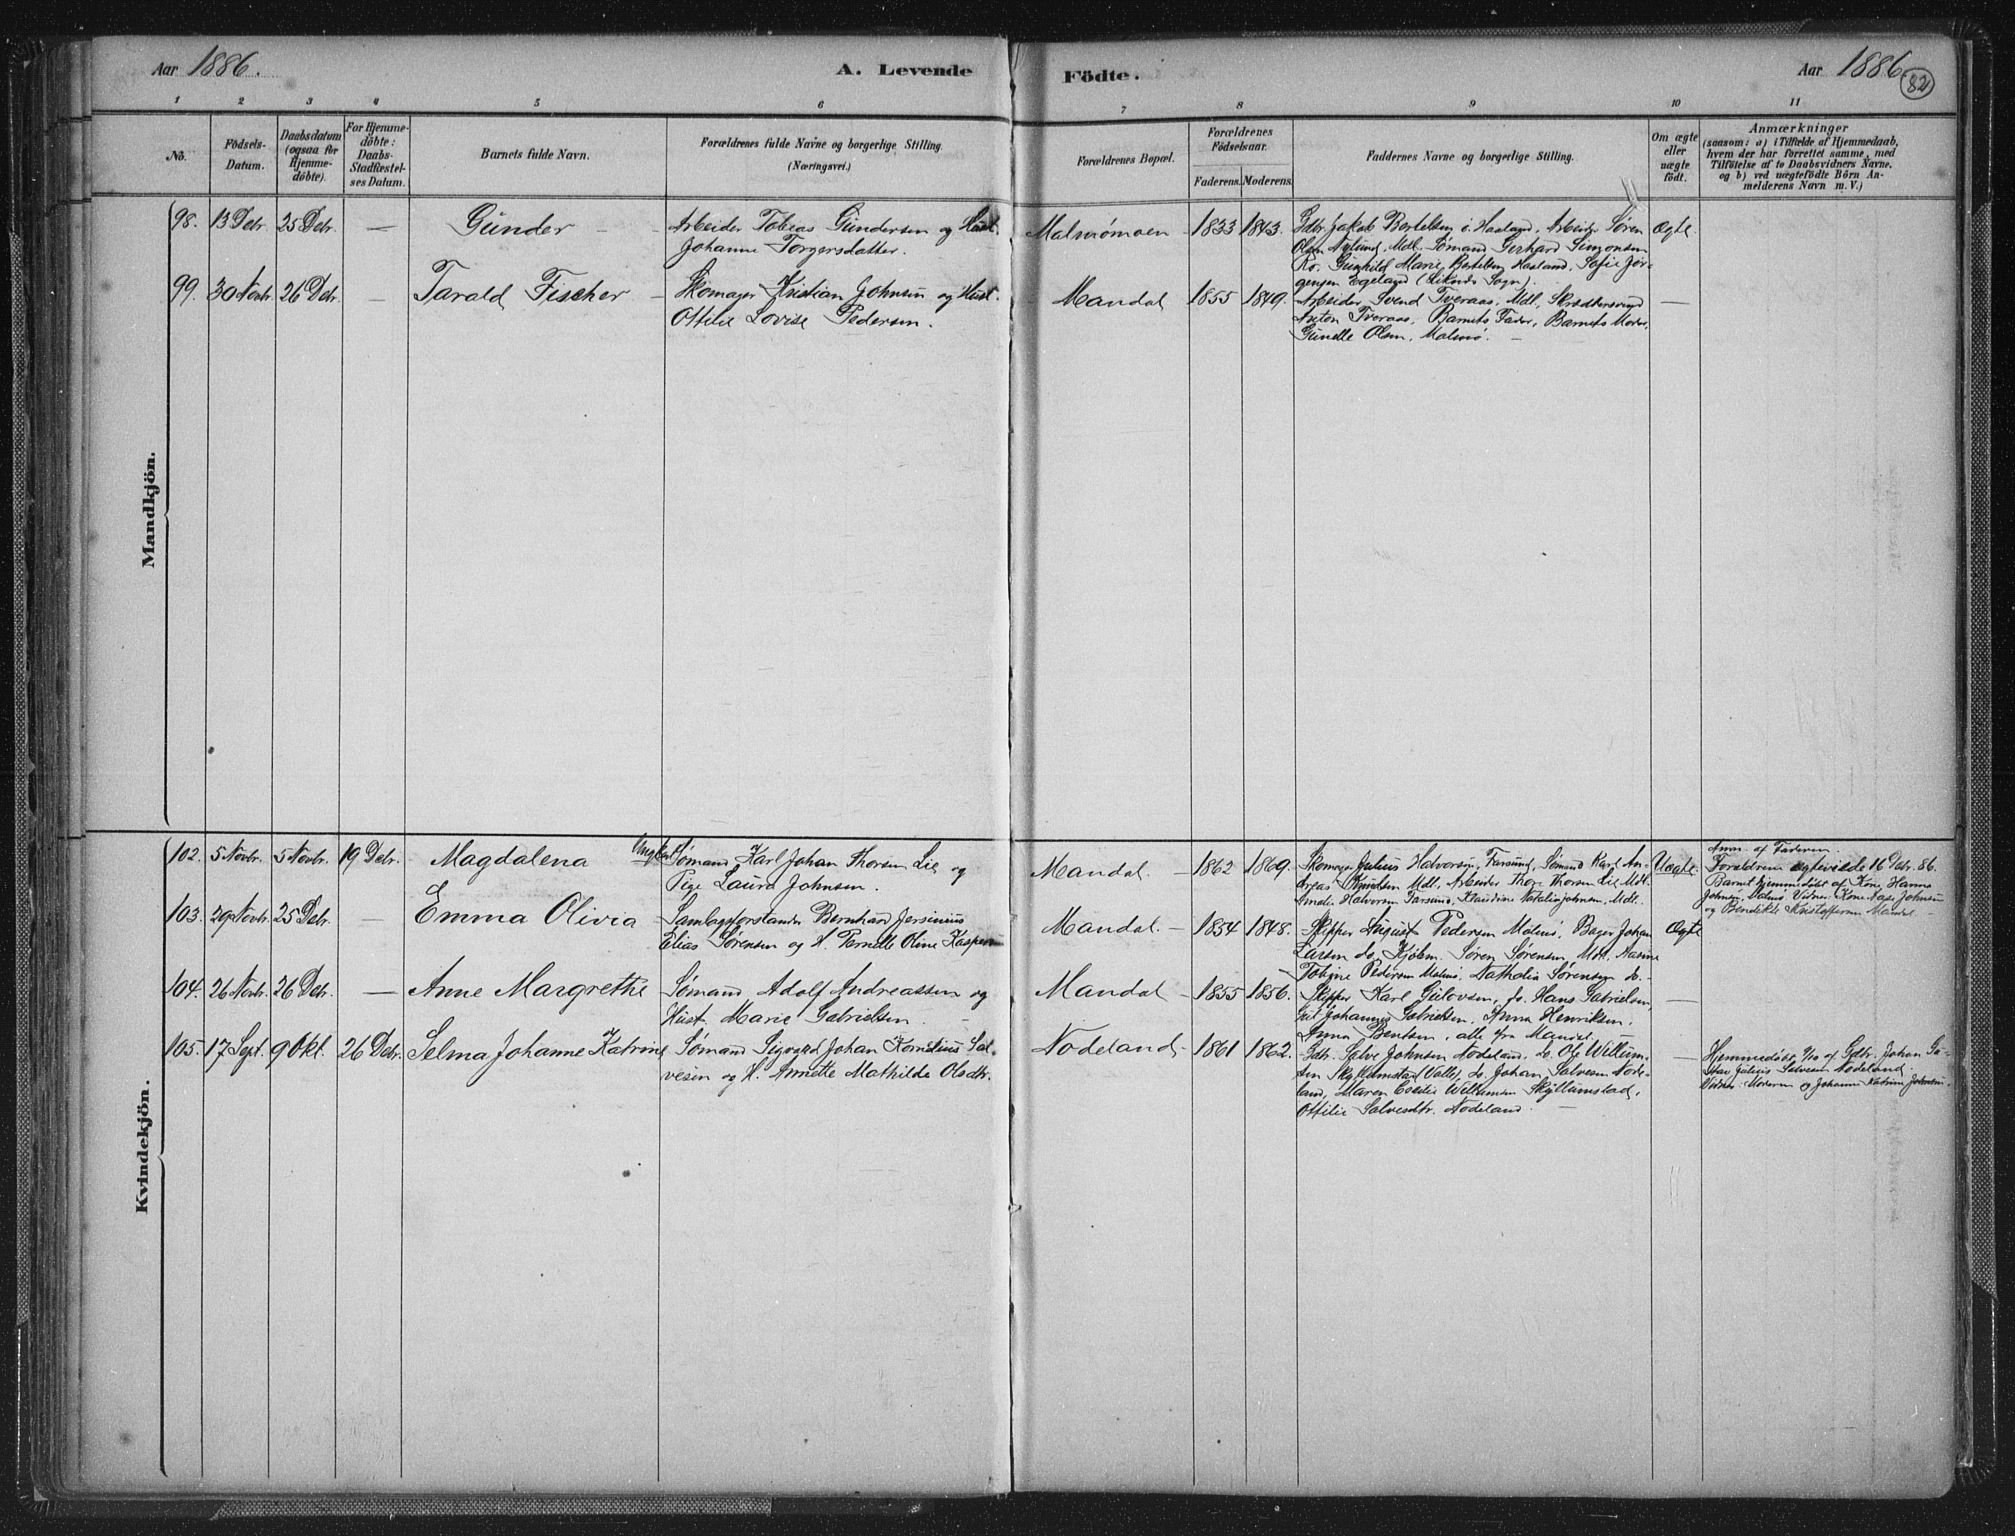 Aar 1886.
A. Levende
Födte.
Aar 1886.
82
1 2 3 4 5 6 7 8 9 10 11
No.
Födsels-
Datum.
Daabsdatum
(ogsaa for
Hjemme-
döbte).
For Hjemme-
döbte:
Daabs-
Stadfæstel-
ses Datum.
Barnets fulde Navn.
Forældrenes fulde Navne og borgerlige Stilling.
(Næringsvei.)
Forældrenes Bopæl.
Forældrenes
Födselsaar.
Faderens. Moderens.
Faddernes Navne og borgerlige Stilling.
Om ægte
eller
uægte
födt.
Anmærkninger
(saasom: a) i Tilfælde af Hjemmedaab,
hvem der har forrettet samme, med
Tilföielse af to Daabsvidners Navne,
og b) ved uægtefödte Börn An-
melderens Navn m. V.)
Mandkjön.
98. 13 Debr. 25 Debr. — Gunder —
Arbeider Tobias Gundersen og Hust.
Johanne Torgersdatter.
Malmømoen 1833 1843.
Gdbr. Jakob Bertelsen i. Haaland, Arbeider Søren
Olsen Nylund, Mdl. Sømand Gerhard Simonsen
Ro. Gunhild Marie Bertelsen Haaland, Sofie Jør-
gensen Egeland (Liknes Sogn).
Ægte.
99. 30 Novbr. 26 Debr. — Tarald Fischer —
Skomager Kristian Johnsen og Hust.
Ottilie Lovise Pedersen.
Mandal 1855 1849.
Arbeider Svend Tveraas, Mdl, Skræddersvend
Anton Tveraas, Barnets Fader, Barnets Moder,
Gunelle Olsen, Malmø. —
—
Kvindekjön.
102. 5 Novbr. 5 Novbr. 19 Debr. Magdalena
Ungkarl Sømand Karl Johan Thorsen Lie og
Pige Laura Johnsen.
Mandal. — 1862 1869.
Skomager Julius Halvorsen, Farsund, Sømand Karl An-
dreas Knudsen Mdl, Arbeider Thore Thorsen Lie Mdl.
Amalie Halvorsen Farsund, Klaudine Natalia Johnsen, Mdl.
Uægte.
Anm. af Faderen.
Forældrene ægteviede 16 Debr. 86.
Barnet hjemmedøbt af Kone Hanna
Johnsen, Malmø. Vidner: Kone Johnsen
og Bendikte Kristoffersen Mandal.
103. 29 Novbr. 25 Debr. — Emma Olivia
Samlagsforstander Bernhard Jersinius
Elias Sørensen og H. Pernelle Oline Kaspersen
Mandal. — 1854 1848.
Skipper August Pedersen Malmø, Bager Johan
Larsen do, Kjøbm. Søren Sørensen Mdl. Karine
Tobine Pedersen Malmø, Nathalia Sørensen do. —
Ægte
104. 26 Novbr. 26 Debr. — Anne Margrethe
Sømand Adolf Andreassen og
Hust. Marie Gabrielsen. —
Mandal — 1855 1856.
Skipper Karl Gulovsen, fv. Hans Gabrielsen,
Johannes Gabrielsen, Anna Henriksen,
Anna Bentsen, alle fra Mandal.
—
105. 17 Sept. 9 Okt. 26 Debr. Selma Johanne Katrine
Sømand Sigvard Johan Kornelius Sal-
vesen og H. Annette Mathilde Olsdtr.
Nodeland 1861 1862.
Gdr. Salve Johnsen Nodeland. do. Ole Willum-
sen Skyllumstad Valle, do Johan Salvesen Node-
land, Maren Cecilie Willumsen Skyllumstad,
Ottilie Salvesdtr. Nodeland. —
—
Hemmedøbt 9/10 af Gdbr. Johan Gu-
stav Julius Salvesen Nodeland.
Vidner: Moderen og Johanne Katrine Johnsen